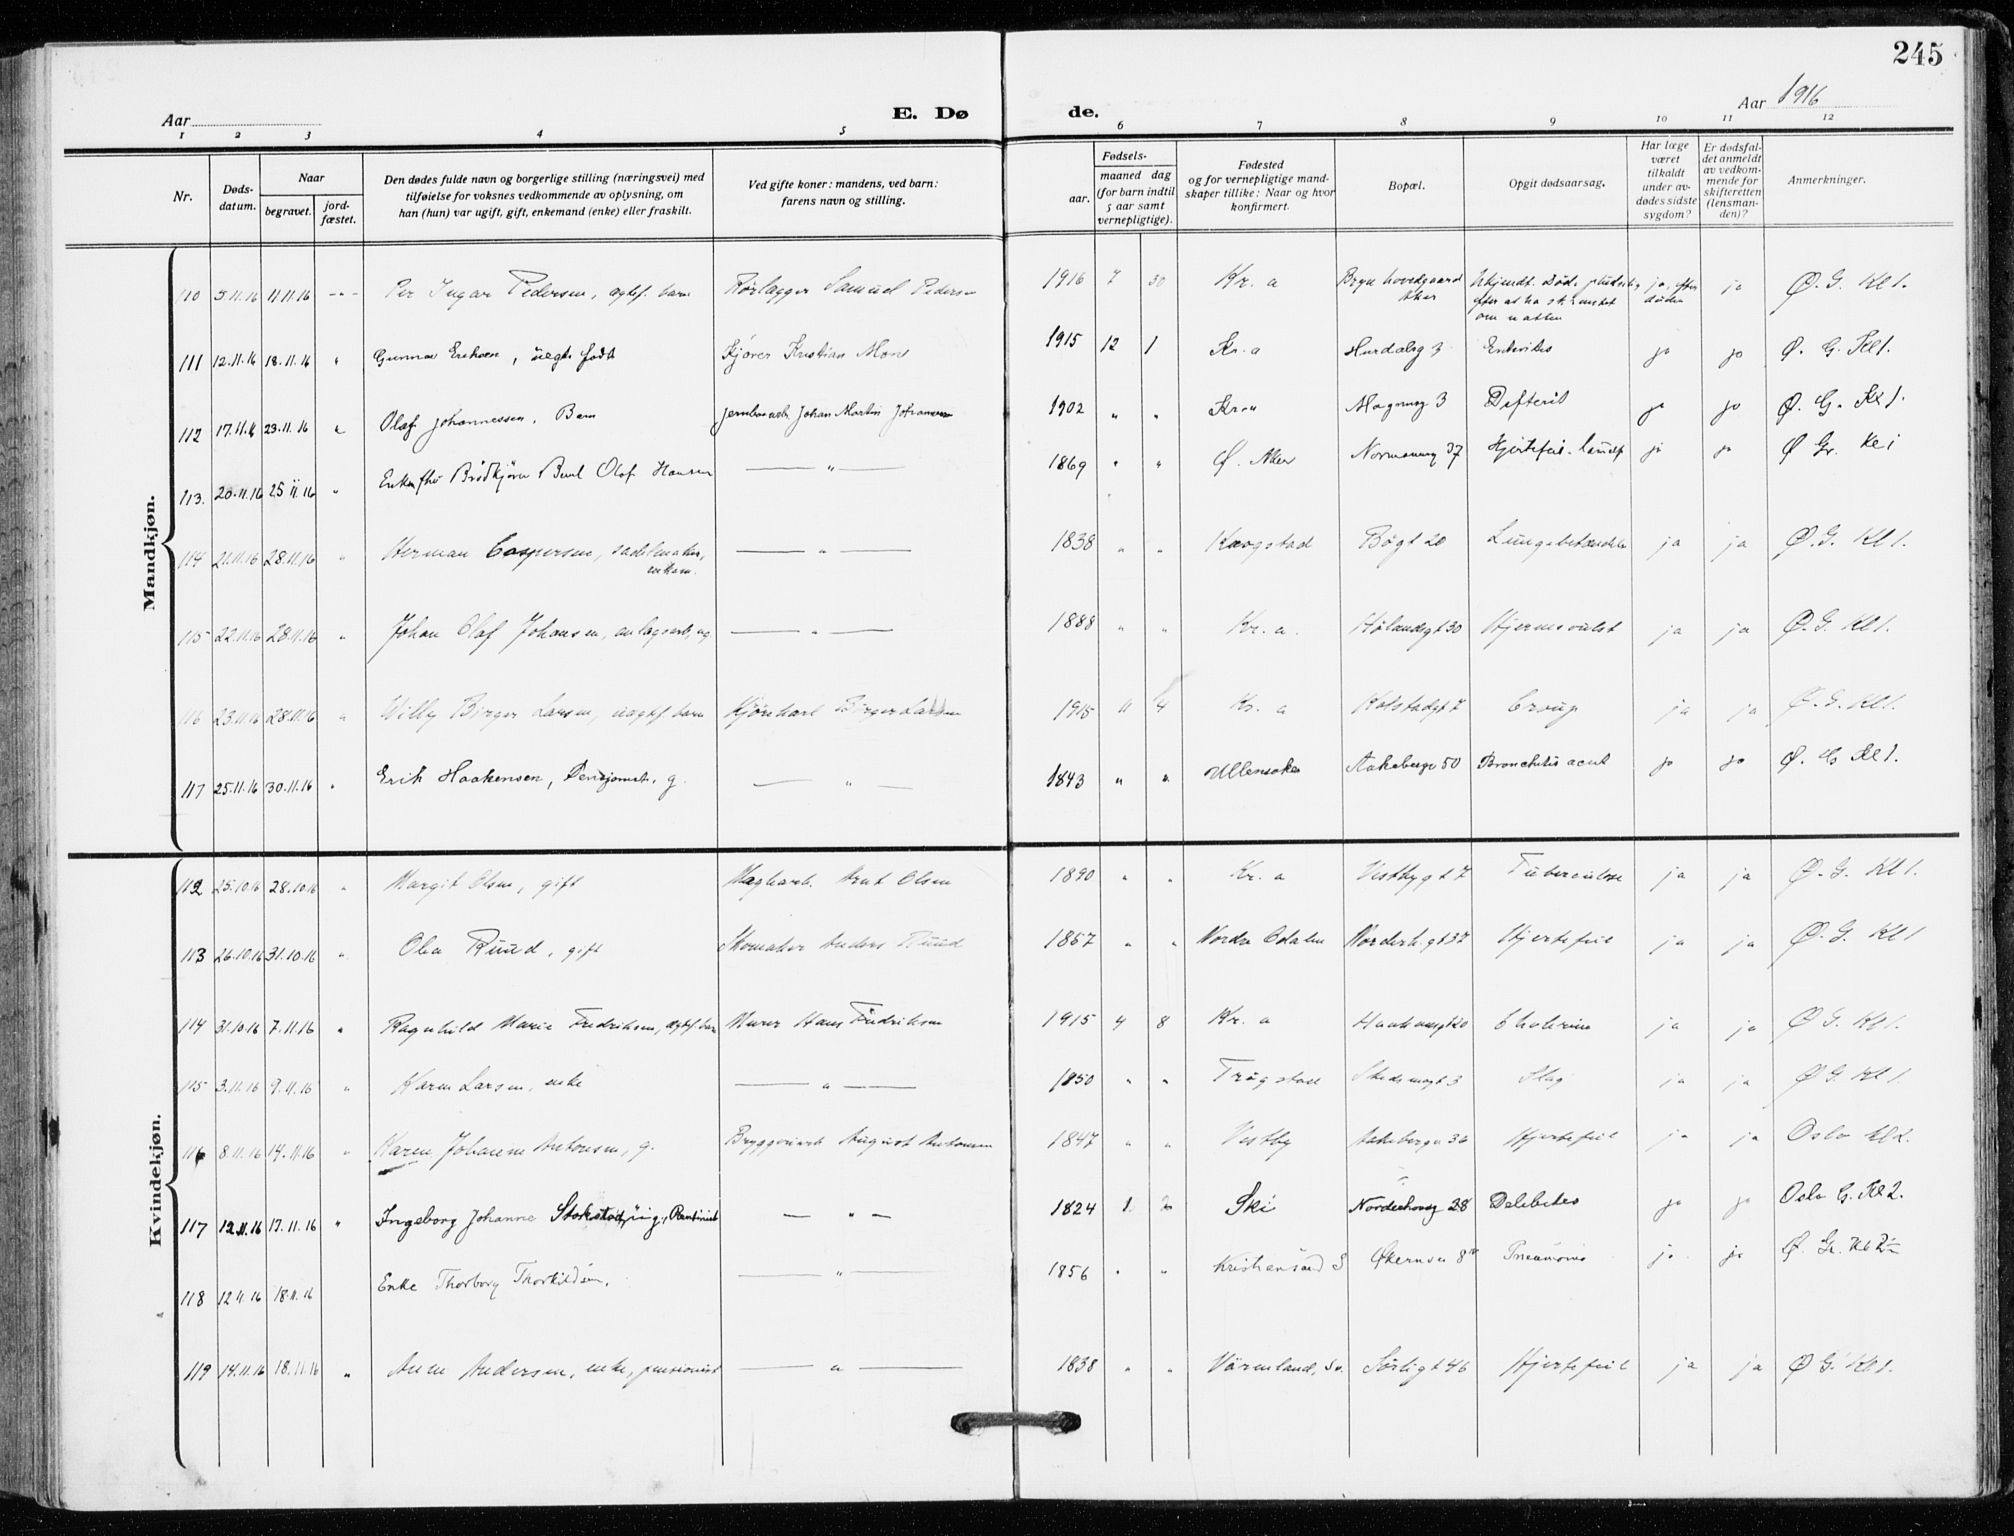 245
Aar
E. Dø
de.
Aar 1916
1 2 3 4 5 6 7 8 9 10 11 12
Nr.
Døds-
datum.
Naar
begravet.
jord-
fæstet.
Den dødes fulde navn og borgerlige stilling (næringsvei) med
tilføielse for voksnes vedkommende av oplysning, om
han (hun) var ugift, gift, enkemand (enke) eller fraskilt.
Ved gifte koner: mandens, ved barn:
farens navn og stilling.
Fødsels-
aar.
maaned dag
(for barn indtil
5 aar samt
vernepligtige).
Fødested
og for vernepligtige mand-
skaper tillike: Naar og hvor
konfirmert.
Bopæl.
Opgit dødsaarsag.
Har læge
været
tilkaldt
under av-
dødes sidste
sygdom?
Er dødsfal-
det anmeldt
av vedkom-
mende for
skifteretten
(lensman-
den)?
Anmerkninger.
Mandkjøn.
110 5.11.16 11.11.16 -"- Per Ingar Pedersen, ægtef. barn Rørlægger Samuel Pedersen 1916 7 30 Kr. a Bryn hovedgaard Aker Ukjendt. Død pludselig efter at ha skrantet om natten ja, efter døden ja Ø. G. Kl 1.
111 12.11.16 18.11.16 " Gunnar Eriksen, uegte født Kjører Kristian Moen 1915 12 1 Kr. a Hurdalsg 3 Enteritis ja ja Ø. G. Kl 1.
112 17.11.16 23.11.16 " Olaf Johannessen, Barn Jernbanearb. Johan Martin Johansen 1902 " " Kr. a Magnusg 3 Difterit ja ja Ø. G. Kl 1.
113. 20.11.16 25 11.16 " Brødkjører Bernt Olaf Hansen — " — 1869 " " Ø. Aker Normanng 37 Hjertefeil ja ja Ø Gr. Kl 1
114 21.11.16 28.11.16 " Herman Caspersen, sadelmaker, enkem. — " — 1838 " " Krogstad Bøgt 20 Lungebetændelse ja ja Ø. G. Kl 1.
115 22.11.16 28.11.16 " Johan Olaf Johansen, anlagsarb, ug — " — 1888 " " Kr. a. Hølandsgt 30 Hjernesvulst ja ja Ø. G. Kl 1.
116 23.11.16 28.11.16 " Willy Birger Larsen, uægtef. barn Kjørekarl Birger Larsen 1915 11 4 Kr. a Kolstadgt 7 Croup ja ja Ø. G. Kl 1.
117 25.11.16 30.11.16 " Erik Haakensen, Pensjonist, g. — " — 1843 " " Ullensaker Aakebergv 50 Bronchitis acut ja ja Ø. G Kl 1.
Kvindekjøn.
112 25.10.16 28.10.16 " Margit Olsen, gift Maglearb. Arnt Olsen 1890 " " Kr. a Vestbygt 7 Tuberculose ja ja Ø. G. Kl 1.
113 26.10.16 31.10.16 " Olea Ruud, gift Skomaker Anders Ruud 1857 " " Nordre Odalen Norderh.gt 37 Hjertefeil ja ja Ø. G. Kl 1
114 31.10.16 7.11.16 " Ragnhild Marie Fredriksen, ægtef. barn Murer Hans Fredriksen 1915 4 8 Kr. a Haakonsgt 20 Cholerine ja ja Ø G. Kl 1.
115 3.11.16 9.11.16 " Karen Larsen, enke — " — 1850 " " Trøgstad Skedsmogt 3 Slag ja ja Ø G. Kl 1.
116 8.11.16 14.11.16 " Karen Johanne Antonsen, g. Bryggeriarb August Antonsen 1847 " " Vestby Aakebergv 36 Hjertefeil ja ja Oslo Kl 2.
117 12.11.16 17.11.16 " Ingeborg Johanne Stokstad, ug., Rentenist — " — 1824 1 2 Ski Norderhovsg 28 ja ja Oslo G. Kl 2.
118 12.11.16 18.11.16 Enke Thorborg Thorkildsen. — " — 1856 " " Kristiansand S Økernvn 8 Pneumoni ja ja Ø. Gr. Kl
119 14.11.16 18.11.16 " Anne Andersen, enke, pensionist — " — 1838 " " Värmland, Sv. Sørligt 46 Hjertefeil ja ja Ø G. Kl 1.